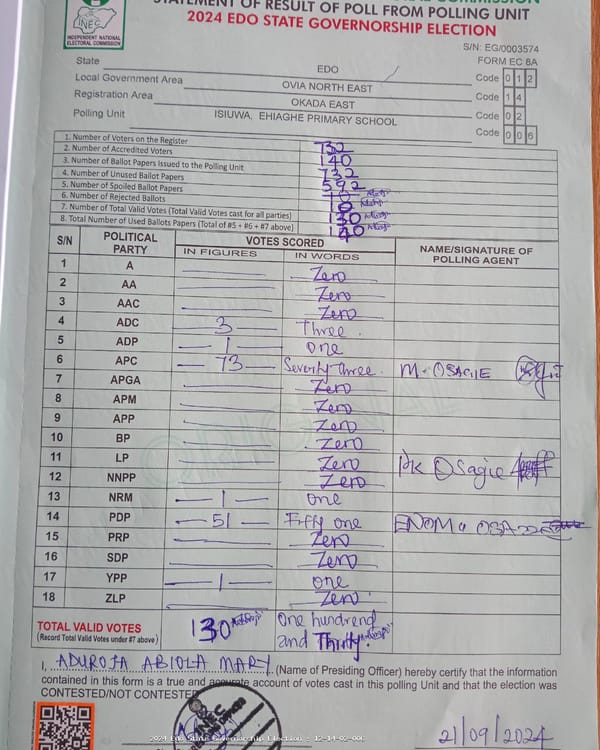 STATEMENT OF RESULT OF POLL FROM POLLING UNIT
2024 EDO STATE GOVERNORSHIP ELECTION
INEC
INDEPENDENT NATIONAL
ELECTORAL COMMISSION
S/N: EG/0003574
FORM EC 8A
State EDO Code 0 1 2
Local Government Area OVIA NORTH EAST Code 1 4
Registration Area OKADA EAST Code 0 2
Polling Unit ISIUWA, EHIAGHE PRIMARY SCHOOL Code 0 0 6
1. Number of Voters on the Register 732
2. Number of Accredited Voters 140
3. Number of Ballot Papers Issued to the Polling Unit 732
4. Number of Unused Ballot Papers 592
5. Number of Spoiled Ballot Papers
6. Number of Rejected Ballots
7. Number of Total Valid Votes (Total Valid Votes cast for all parties) 130
8. Total Number of Used Ballots Papers (Total of #5 + #6 + #7 above) 140
S/N POLITICAL PARTY VOTES SCORED NAME/SIGNATURE OF POLLING AGENT
IN FIGURES IN WORDS
1 A Zero
2 AA Zero
3 AAC Zero
4 ADC 3 Three
5 ADP 1 one
6 APC 73 Seventy three. M. OSAGIE
7 APGA Zero
8 APM Zero
9 APP Zero
10 BP Zero
11 LP Zero Osagie
12 NNPP Zero
13 NRM 1 one
14 PDP 51 Fifty one
15 PRP Zero
16 SDP Zero
17 YPP 1 one
18 ZLP Zero
TOTAL VALID VOTES 130 One hundrend
(Record Total Valid Votes under #7 above) and Thirty.
I, ADUROJA ABIOLA MARY (Name of Presiding Officer) hereby certify that the information
contained in this form is a true and accurate account of votes cast in this polling Unit and that the election was
CONTESTED/NOT CONTESTED
2024 Edo State Governorship Election : 12-14-02-006
21/09/2024